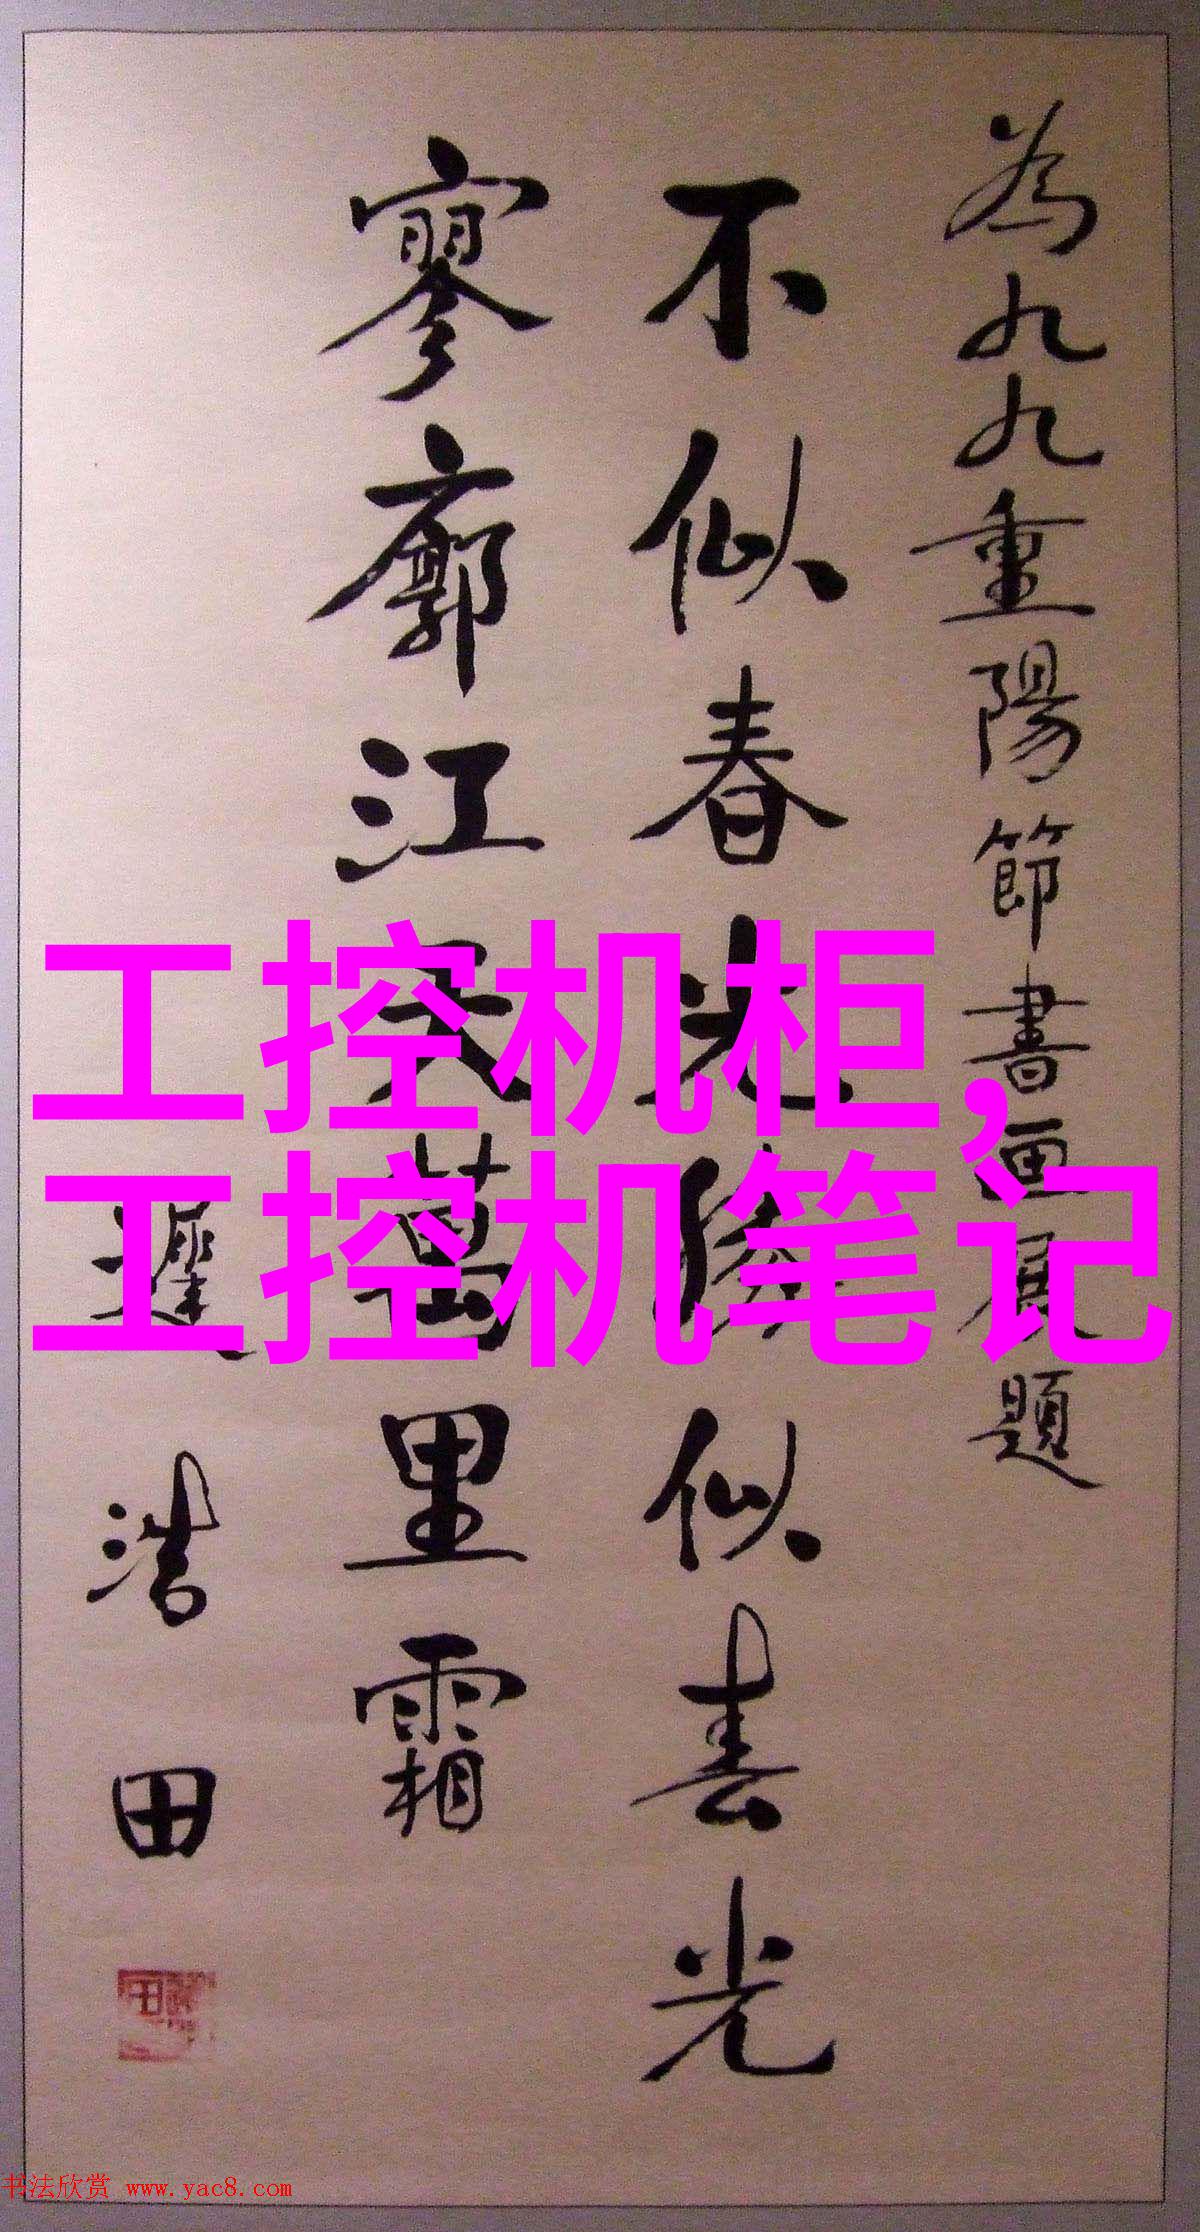 為九九重陽節書画展題
不似春光勝似春光
寥廓江天萬里霜
遲浩田
工控机柜,
工控机笔记
书法欣赏 www.yac8.com